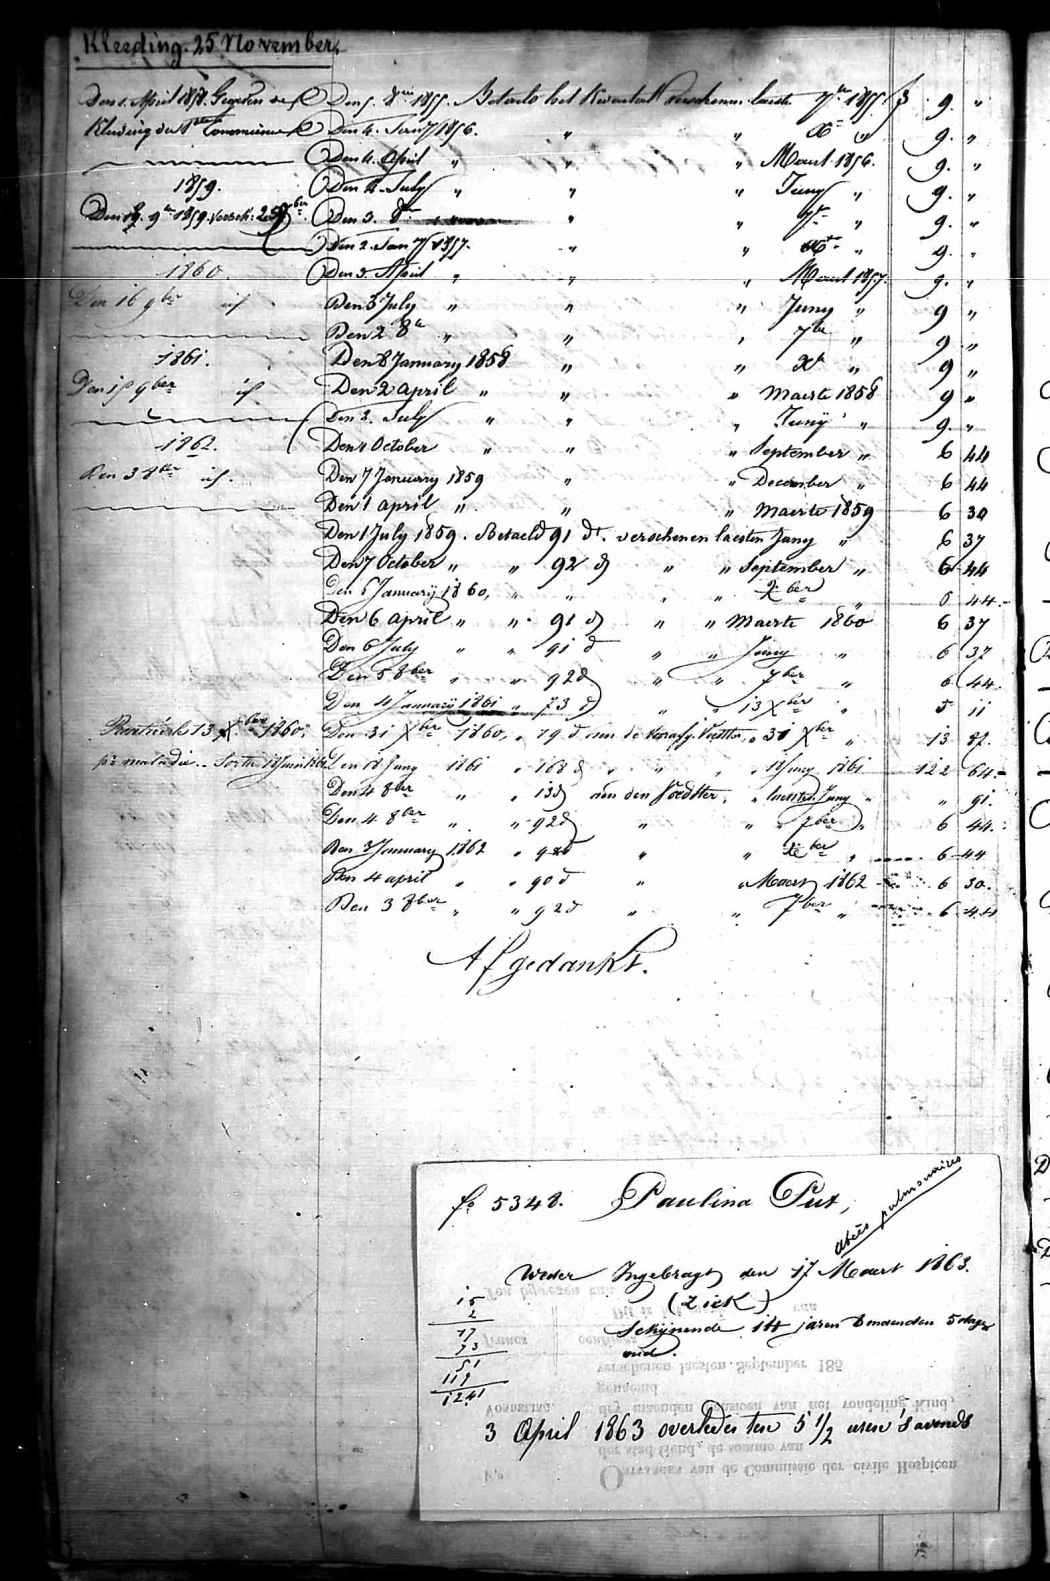 Kleeding. 25 November.
Den 1. April 1858. Gegeven de
Kleeding der 1ste Communie
1859.
Den 19. 9ber 1859. versch: 25 9ber
1860.
Den 16 9ber id
1861.
Den 15 9ber id
1862.
Den 3 8ber id.
Rentrée le 13 Xber 1860.
pr maladie. Sortie 18 Juin 1861
Den 5. 8ber 1855. Betaeld het Kwartael verschenen laesten 7ber 1855. f 9. "
Den 4. Jany 1856. " " Xber " 9. "
Den 4. April " " " Maart 1856. 9. "
Den 4. July " " " Juny " 9. "
Den 3. 8ber " " 7ber " 9. "
Den 2. Jany 1857. " " Xber " 9. "
Den 3. April " " " Maart 1857. 9. "
Den 3 July " " " Juny " 9 "
Den 2 8ber " " " 7ber " 9 "
Den 8 January 1858 " " Xber " 9 "
Den 2 April " " " Maerte 1858 9 "
Den 2. July " " " Juny " 9. "
Den 1 October " " " September " 6 44
Den 7 January 1859 " December " 6 44
Den 1 april " " " Maerte 1859 6 30
Den 1 July 1859. Betaeld 91 d. verschenen laesten Juny " 6 37
Den 7 October " " 92 d " " September " 6 44
Den 6 January 1860, " " " " Xber " 6 44
Den 6 april " " 91 d " " Maerte 1860 6 37
Den 6 July " " 91 d " " Juny " 6 37
Den 5 8ber " " 92 d " " 7ber " 6 44
Den 4 January 1861 " 73 d " " 13 Xber " 5 11
Den 31 Xber 1860, " 19 d aan de " 31 Xber " 13 87.
Den 18 Juny 1861 " 168 d " " " 18 Juny 1861 122 64
Den 4 8ber " " 13 d aan den Voedster, " laesten Juny " " 91.
Den 4 8ber " " 92 d " " 7ber " 6 44.
Den 3 January 1862 " 92 d " " Xber " 6 44
Den 4 april " " 90 d " " Maart 1862 6 30.
Den 3 8ber " " 92 d " " 7ber " 6 44
Afgedankt.
fo 5348. Paulina Put,
abcès pulmonaires
Weder Ingebragt den 17 Maart 1863.
(Ziek)
Schijnende 14 jaren 8 maenden 5 dagen
oud.
15
2
17
73
51
119
1241
3 April 1863 overleden ten 5 1/2 uren 's avonds
Ontvangen van de Commissie der civile Hospicen
der stad Gend, de somme van
voor
dry maanden pensioen van het vondeling Kind,
genaemd
verschenen laesten September 185
francs centimen